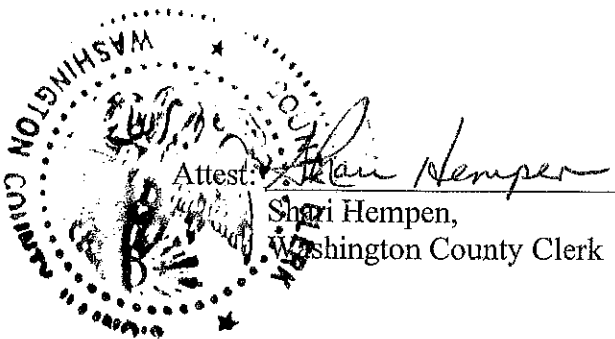 WASHINGTON COUNTY
COUNTY CLERK
Attest: Shari Hempen
Shari Hempen,
Washington County Clerk